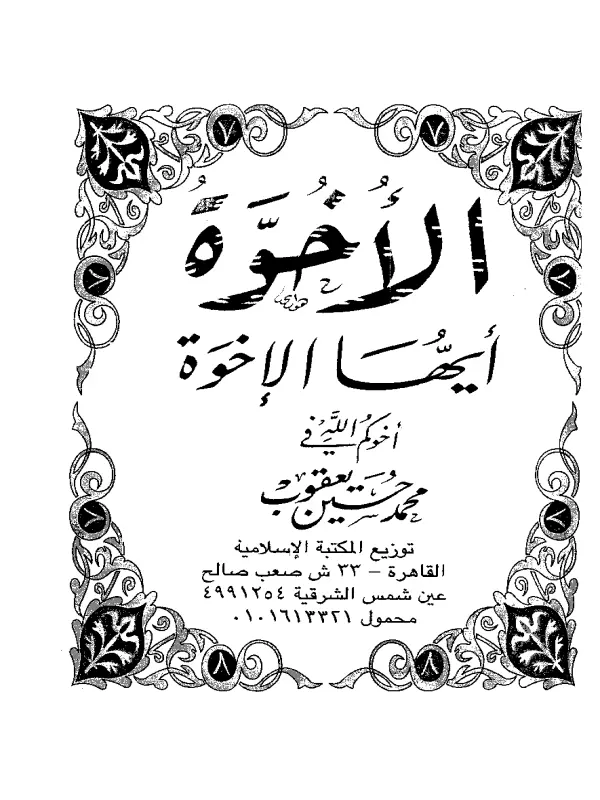 الأُخُوَّةَ
أيُّها الإخوة
أخوكم في اللَّه
محمد حسين يعقوب
توزيع المكتبة الإسلامية
القاهرة - ٣٣ ش صعب صالح
عين شمس الشرقية ٤٩٩١٢٥٤
محمول ٠١٠١٦١٣٣٢١